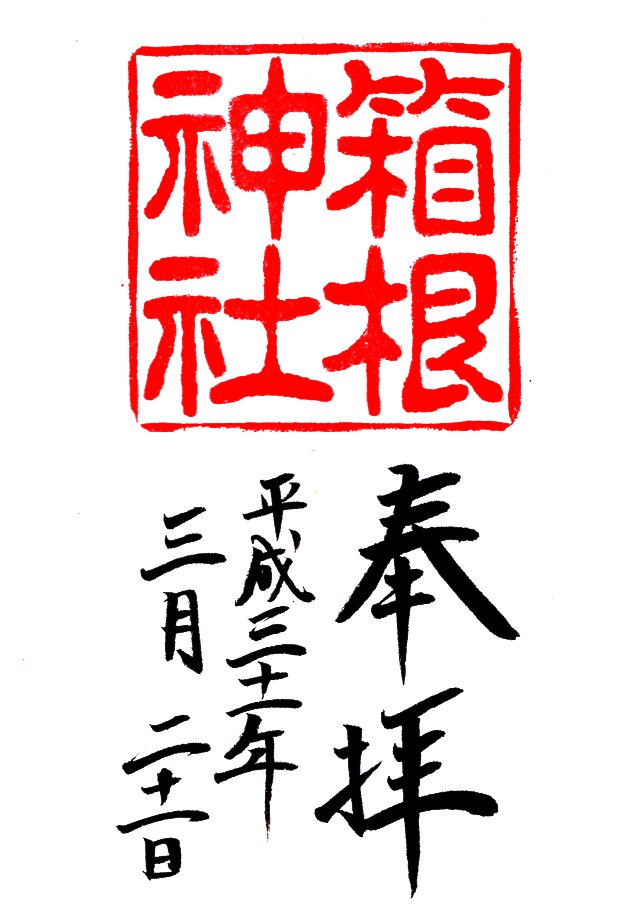 箱根
神社
奉拝
平成三十一年
三月二十一日